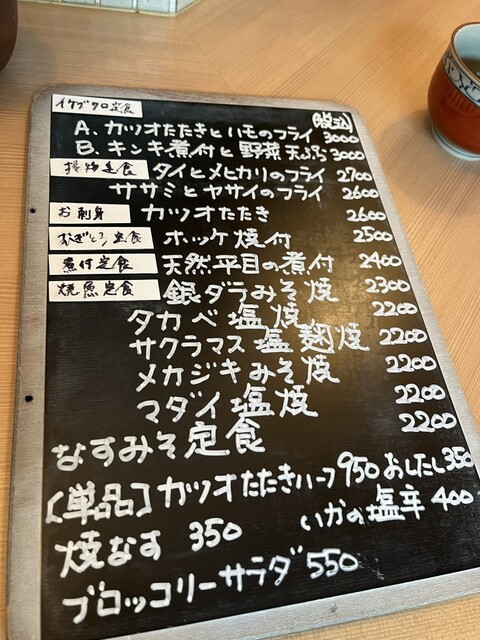 イケブクロ定食
(税込)
A、カツオたたきとハモのフライ 3000
B、キンキ煮付と野菜天ぷら 3000
揚物定食 タイとメヒカリのフライ 2700
ササミとヤサイのフライ 2600
お刺身 カツオたたき 2600
定食 ホッケ焼付 2500
煮付定食 天然平目の煮付 2400
焼魚定食 銀ダラみそ焼 2300
タカベ塩焼 2200
サクラマス塩麹焼 2200
メカジキみそ焼 2200
マダイ塩焼 2200
なすみそ定食 2200
[単品] カツオたたきハーフ 950 おしたし 350
焼なす 350 いかの塩辛 400
ブロッコリーサラダ 550